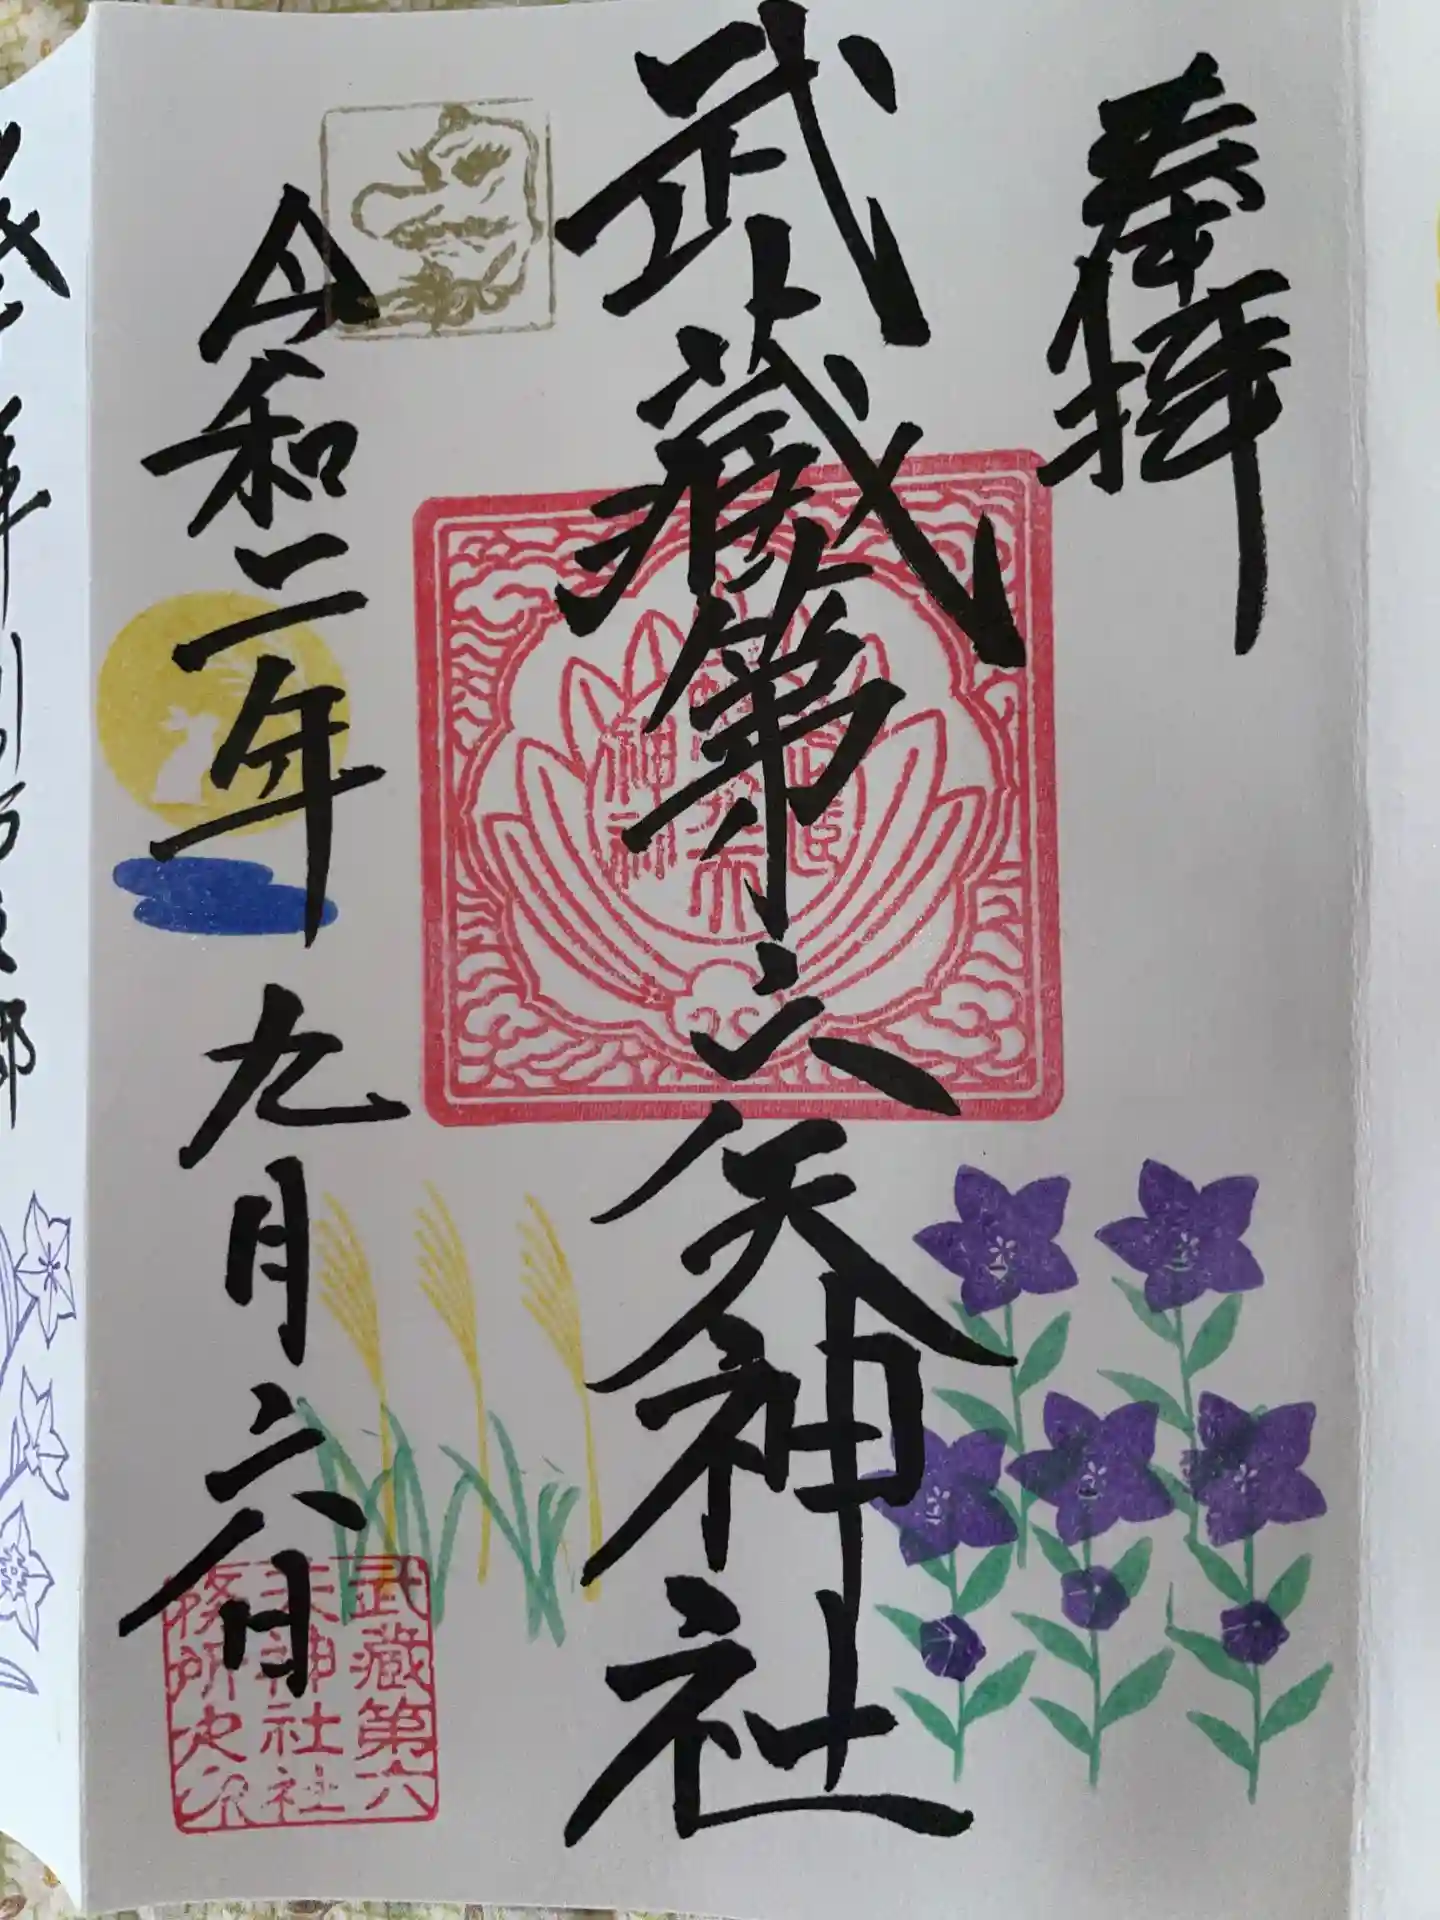 奉拝
武蔵第六天神社
令和二年九月六日
武藏第六
天神社社
務所之印